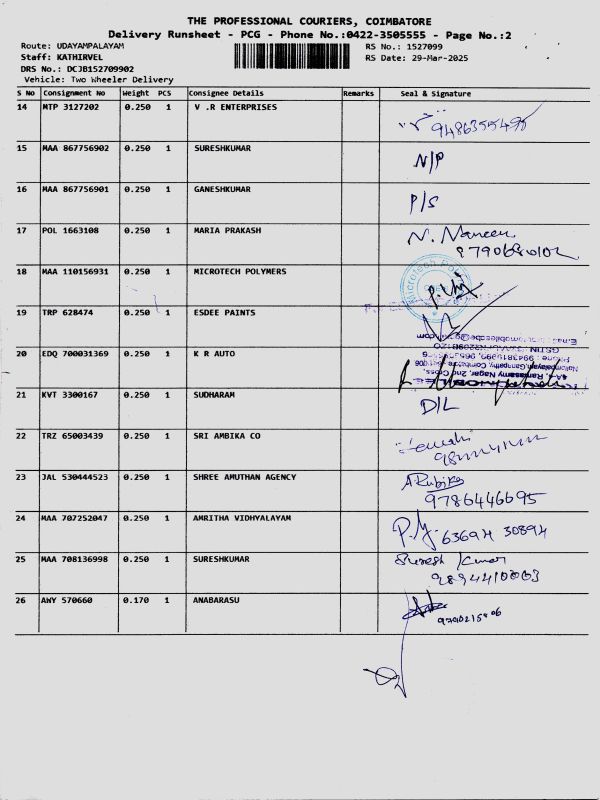 THE PROFESSIONAL COURIERS, COIMBATORE
Delivery Runsheet - PCG - Phone No.:0422-3505555 - Page No.:2
Route: UDAYAMPALAYAM RS No.: 1527099
Staff: KATHIRVEL RS Date: 29-Mar-2025
DRS No.: DCJB152709902
Vehicle: Two Wheeler Delivery
S No Consignment No Weight PCS Consignee Details Remarks Seal & Signature
14 MTP 3127202 0.250 1 V .R ENTERPRISES
9486355495
15 MAA 867756902 0.250 1 SURESHKUMAR N/P
16 MAA 867756901 0.250 1 GANESHKUMAR P/S
17 POL 1663108 0.250 1 MARIA PRAKASH N. Naveen
18 MAA 110156931 0.250 1 MICROTECH POLYMERS
19 TRP 628474 0.250 1 ESDEE PAINTS
20 EDQ 700031369 0.250 1 K R AUTO
21 KVT 3300167 0.250 1 SUDHARAM D/L
22 TRZ 65003439 0.250 1 SRI AMBIKA CO
23 JAL 530444523 0.250 1 SHREE AMUTHAN AGENCY A Rubika
9786446695
24 MAA 707252047 0.250 1 AMRITHA VIDHYALAYAM 63694 30894
25 MAA 708136998 0.250 1 SURESHKUMAR Suresh Kumar
26 AWY 570660 0.170 1 ANABARASU